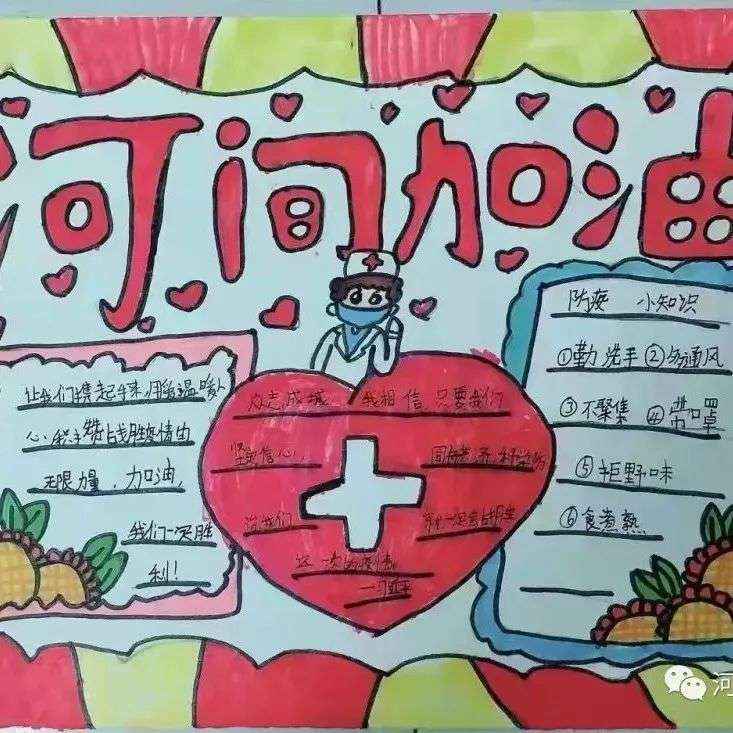 河间加油
让我们携起手来,用温暖人
心 战胜疫情的
无限力量,加油,
我们一定胜
利!
众志成城 我相信 只要我们
坚定信心
这一次的疫情
防疫 小知识
①勤洗手 ②多通风
③不聚集 ④带口罩
⑤拒野味
⑥食煮熟
河